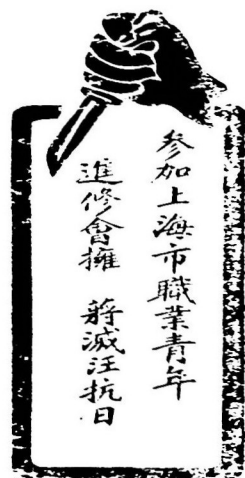 参加上海市職業青年
進修會擁 蔣滅汪抗日